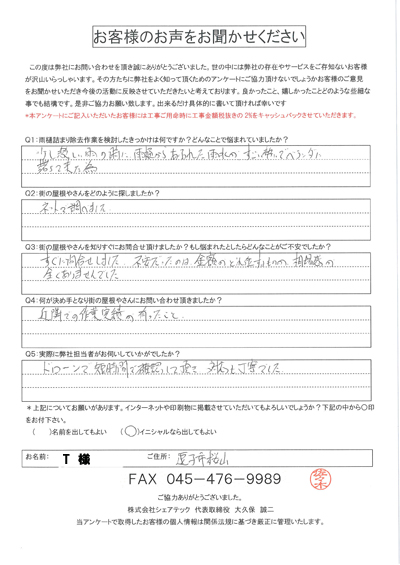 お客様のお声をお聞かせください
この度は弊社にお問い合わせを頂き誠にありがとうございました。世の中には弊社の存在やサービスをご存知ないお客様
が沢山いらっしゃいます。その方たちに弊社をよく知って頂くためのアンケートにご協力頂けないでしょうかお客様のご意見
をお聞かせいただき今後の活動に反映させていただきたいと考えております。良かったこと、嬉しかったことどのような些細な
事でも結構です。是非ご協力お願い致します。出来るだけ具体的に書いて頂ければ幸いです
*本アンケートにご記入いただいたお客様には工事ご用命時に工事金額税抜きの 2%をキャッシュバックさせていただきます。
Q1:雨樋詰まり除去作業を検討したきっかけは何ですか?どんなことで悩まれていましたか?
少し激しい雨の際に、雨樋からあふれた雨水の すごい勢いでベランダに
落ちて来た為
Q2:街の屋根やさんをどのように探しましたか?
ネットで調べました
Q3:街の屋根やさんを知りすぐにお問合せ頂けましたか?もし悩まれたとしたらどんなことがご不安でしたか?
すぐに問合せしました 不安だったのは 金額の どれ位するものか 相場感が
全くありませんでした
Q4:何が決め手となり街の屋根やさんにお問い合わせ頂きましたか?
近隣での作業実績が有ったこと
Q5:実際に弊社担当者がお伺いしていかがでしたか?
ドローンで短時間で確認して頂き 対応も丁寧でした
*上記についてお願いがあります。インターネットや印刷物に掲載させていただいてもよろしいでしょうか?下記の中から〇印
をお付下さい。
( )名前を出してもよい (〇)イニシャルなら出してもよい
お名前: T 様 ご住所: 逗子市桜山
FAX 045-476-9989
佐々木
ご協力ありがとうございました。
株式会社シェアテック 代表取締役 大久保 誠二
当アンケートで取得したお客様の個人情報は関係法規に基づき厳正に管理いたします。